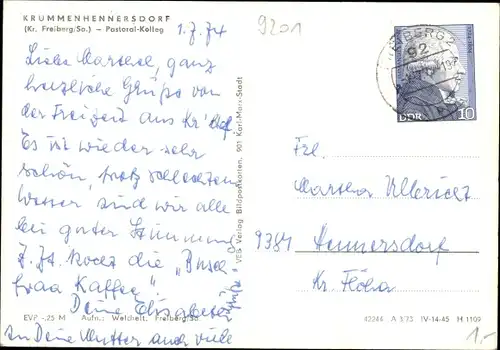 KRUMMENHENNERSDORF
(Kr. Freiberg/Sa.) — Pastoral-Kolleg
1.7.74
9201
Liebe Martha, ganz
herzliche Grüße von
der Freizeit aus Kr'dorf.
Es ist wieder sehr
schön, trotz schlechtem
Wetter sind wir alle
bei guter Stimmung
z. Zt. kocht die "Insel
frau Kaffee"
Deine Elisabeth
an Deine Mutter auch viele
Grüße
VEB Verlag Bildpostkarten, 901 Karl-Marx-Stadt
EVP -,25 M Aufn.: Weldhelt, Freiberg/Sa.
92
DDR 10
Frl.
Martha Ullricht
9384 Hennersdorf
Kr. Flöha
82244 A 5/73 IV-14-45 H 1109
1.-